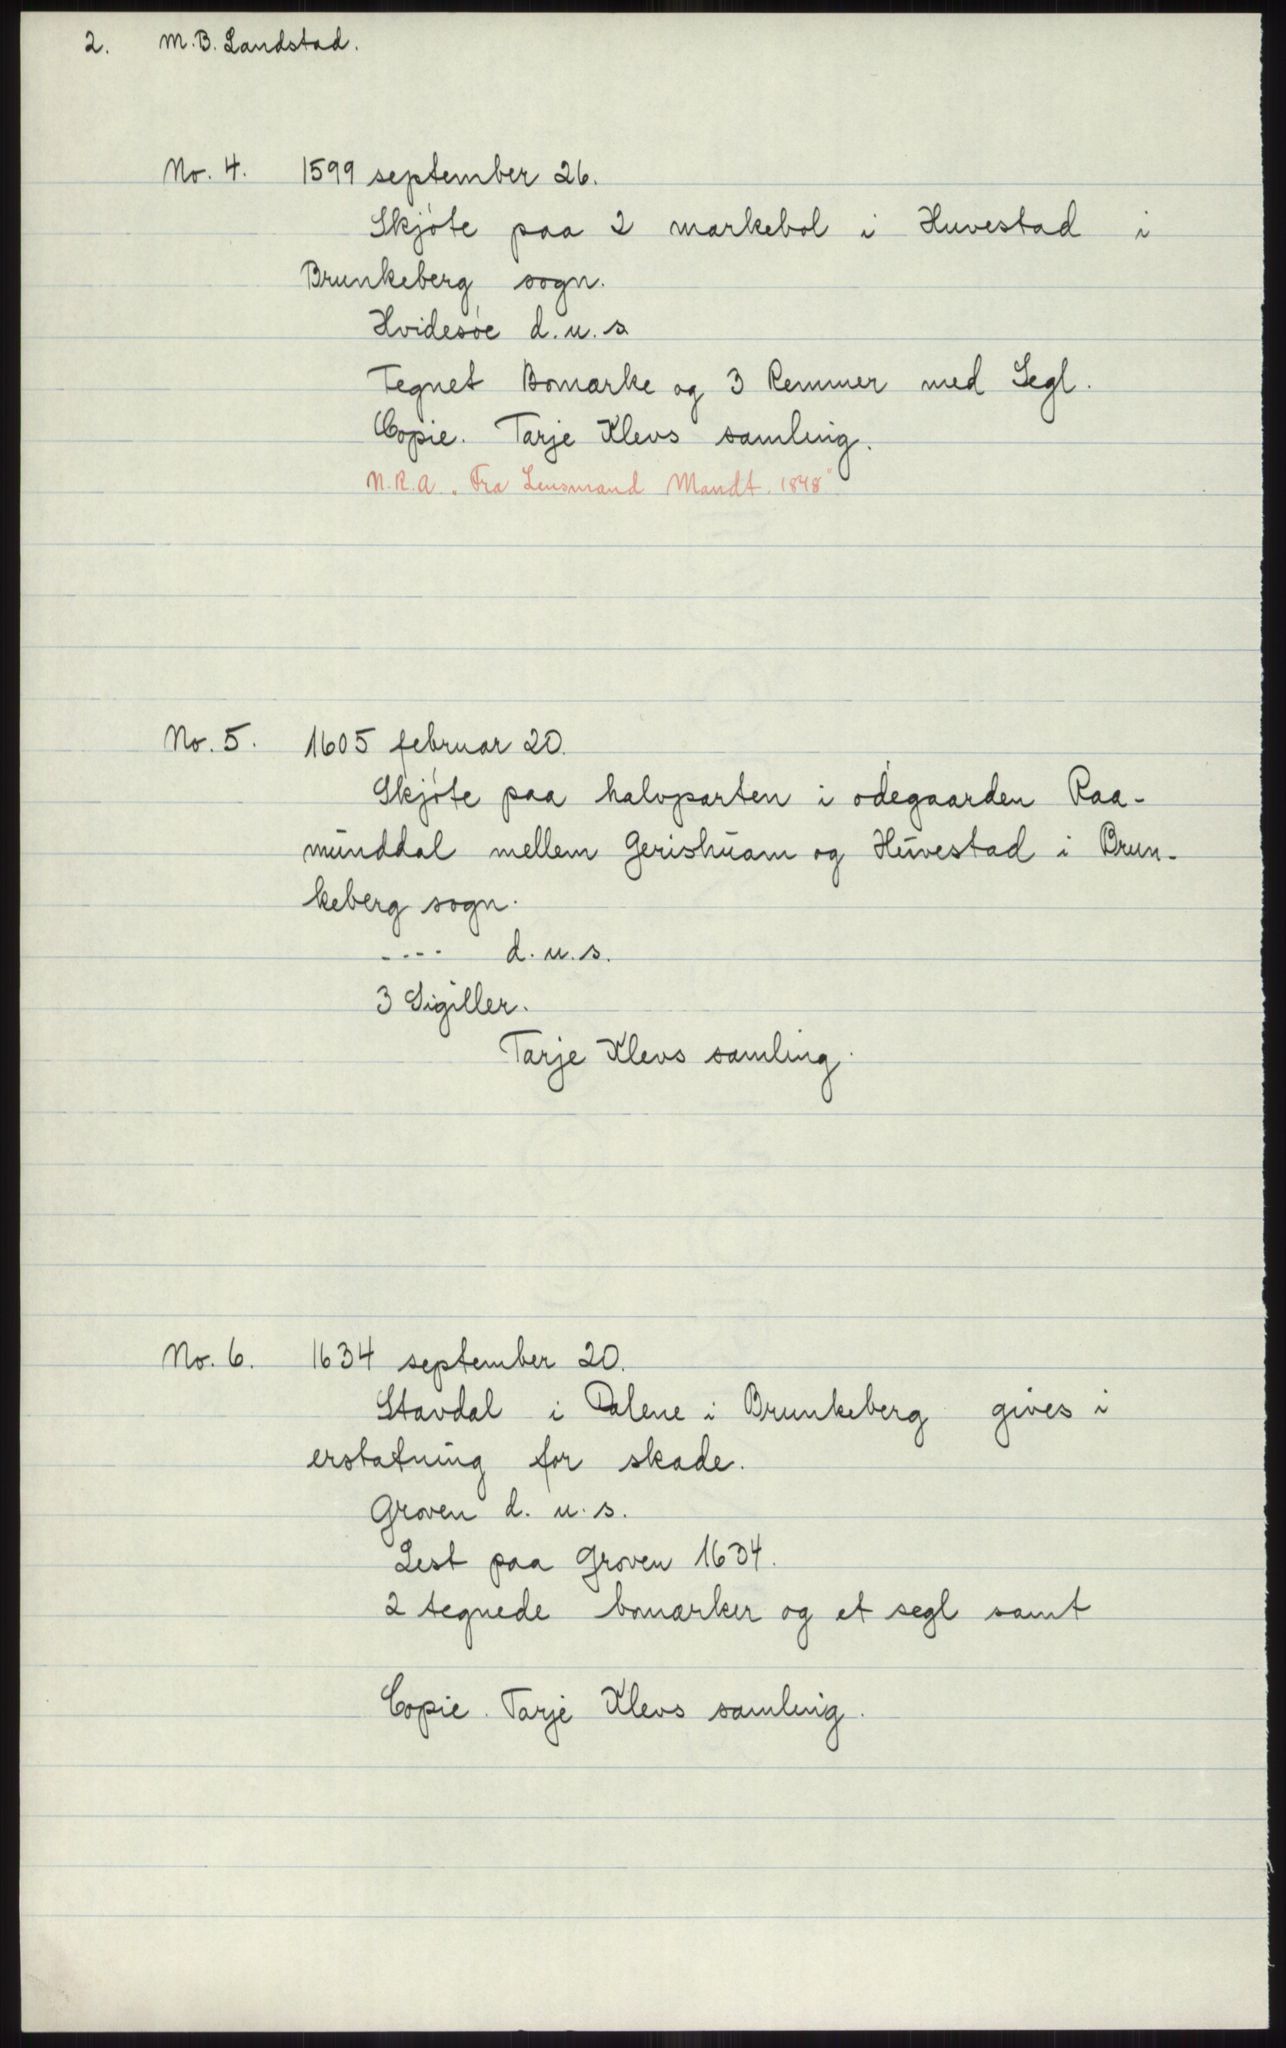 2. M.B. Landstad.
No. 4. 1599 september 26.
Skjóte paa 2 markebol i Huvestad i
Brunkeberg sogn.
Hvidesóe d.u.s.
Tegnet Bomærke og 3 Remmer med Segl.
Copie. Tarje Klevs samling.
N.R.A. "Fra Lensmand Mandt. 1848"
No. 5. 1605 februar 20.
Skjóte paa halvparten i ódegaarden Raa-
munddal mellem Gerishuam og Huvestad i Brun-
keberg sogn.
---- d.u.s.
3 Sigiller.
Tarje Klevs samling.
No. 6. 1634 september 20.
Stavdal i Dalene i Brunkeberg gives i
erstatning for skade.
Groven d. u. s.
Lest paa Groven 1634.
2 tegnede bomærker og et segl samt
Copie. Tarje Klevs samling.